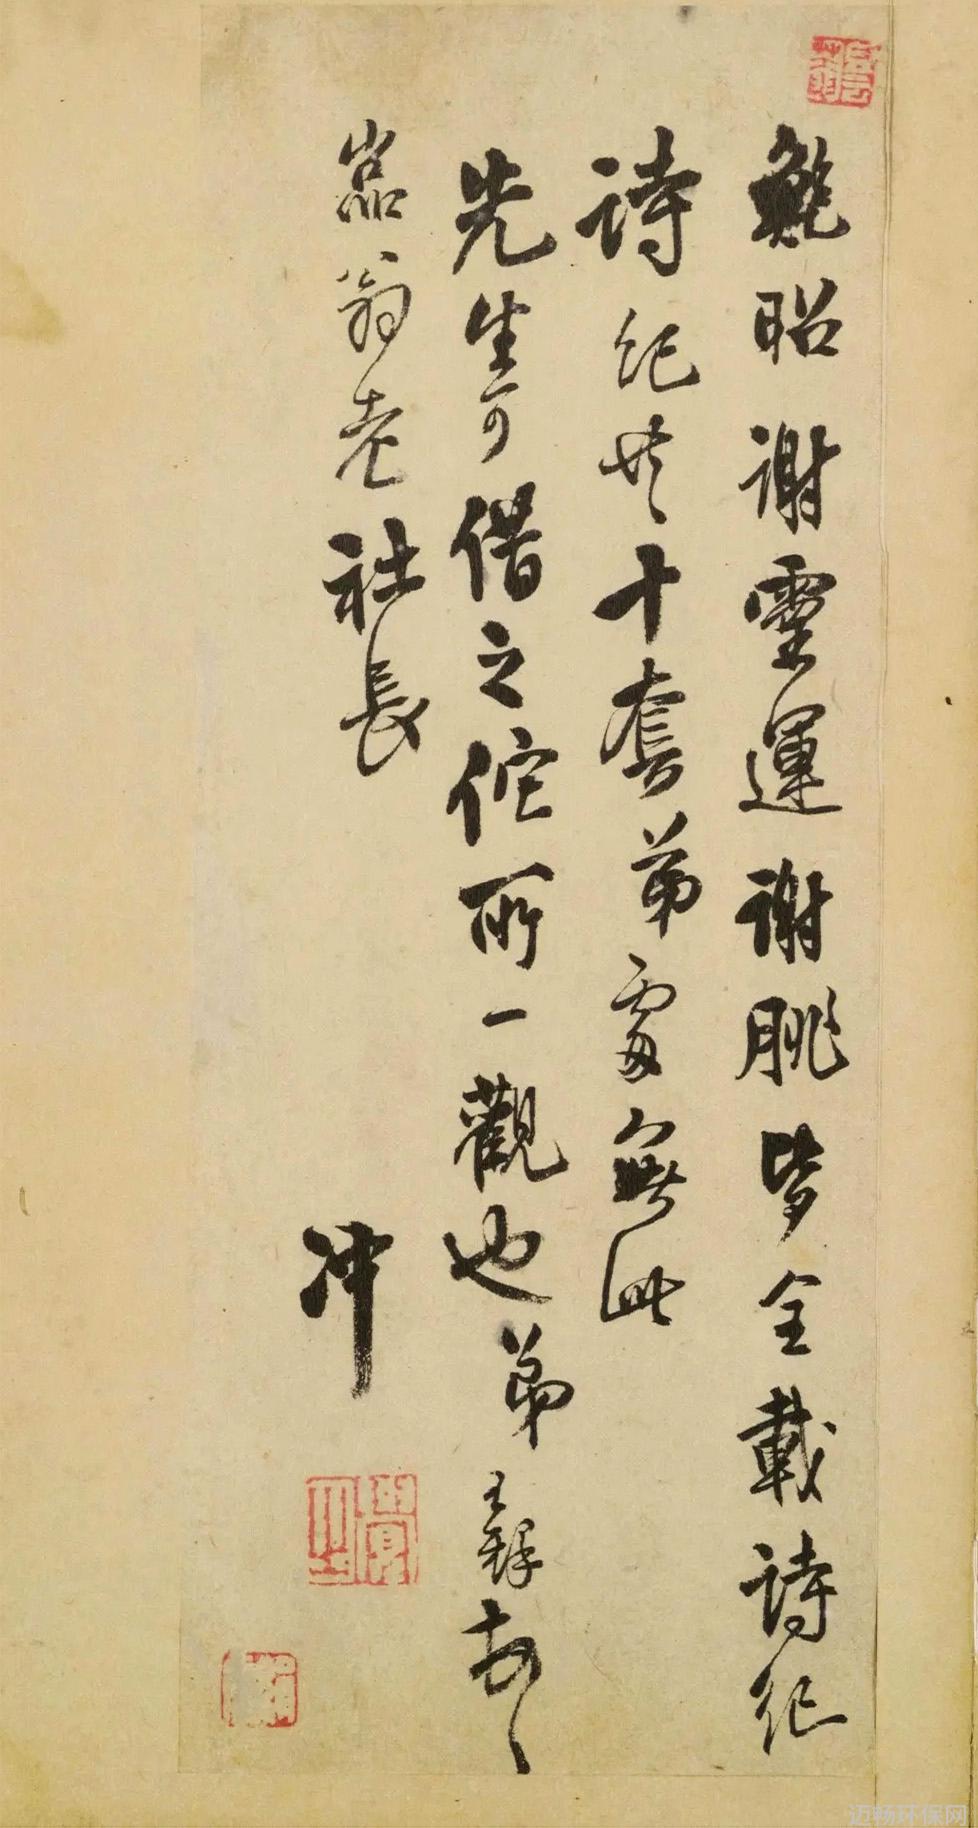 鮑昭謝靈運謝朓皆全載詩紀
詩紀共十套弟處無此
先生可借之佗所一觀也弟王鐸
嵓翁老社長
冲
迈畅环保网